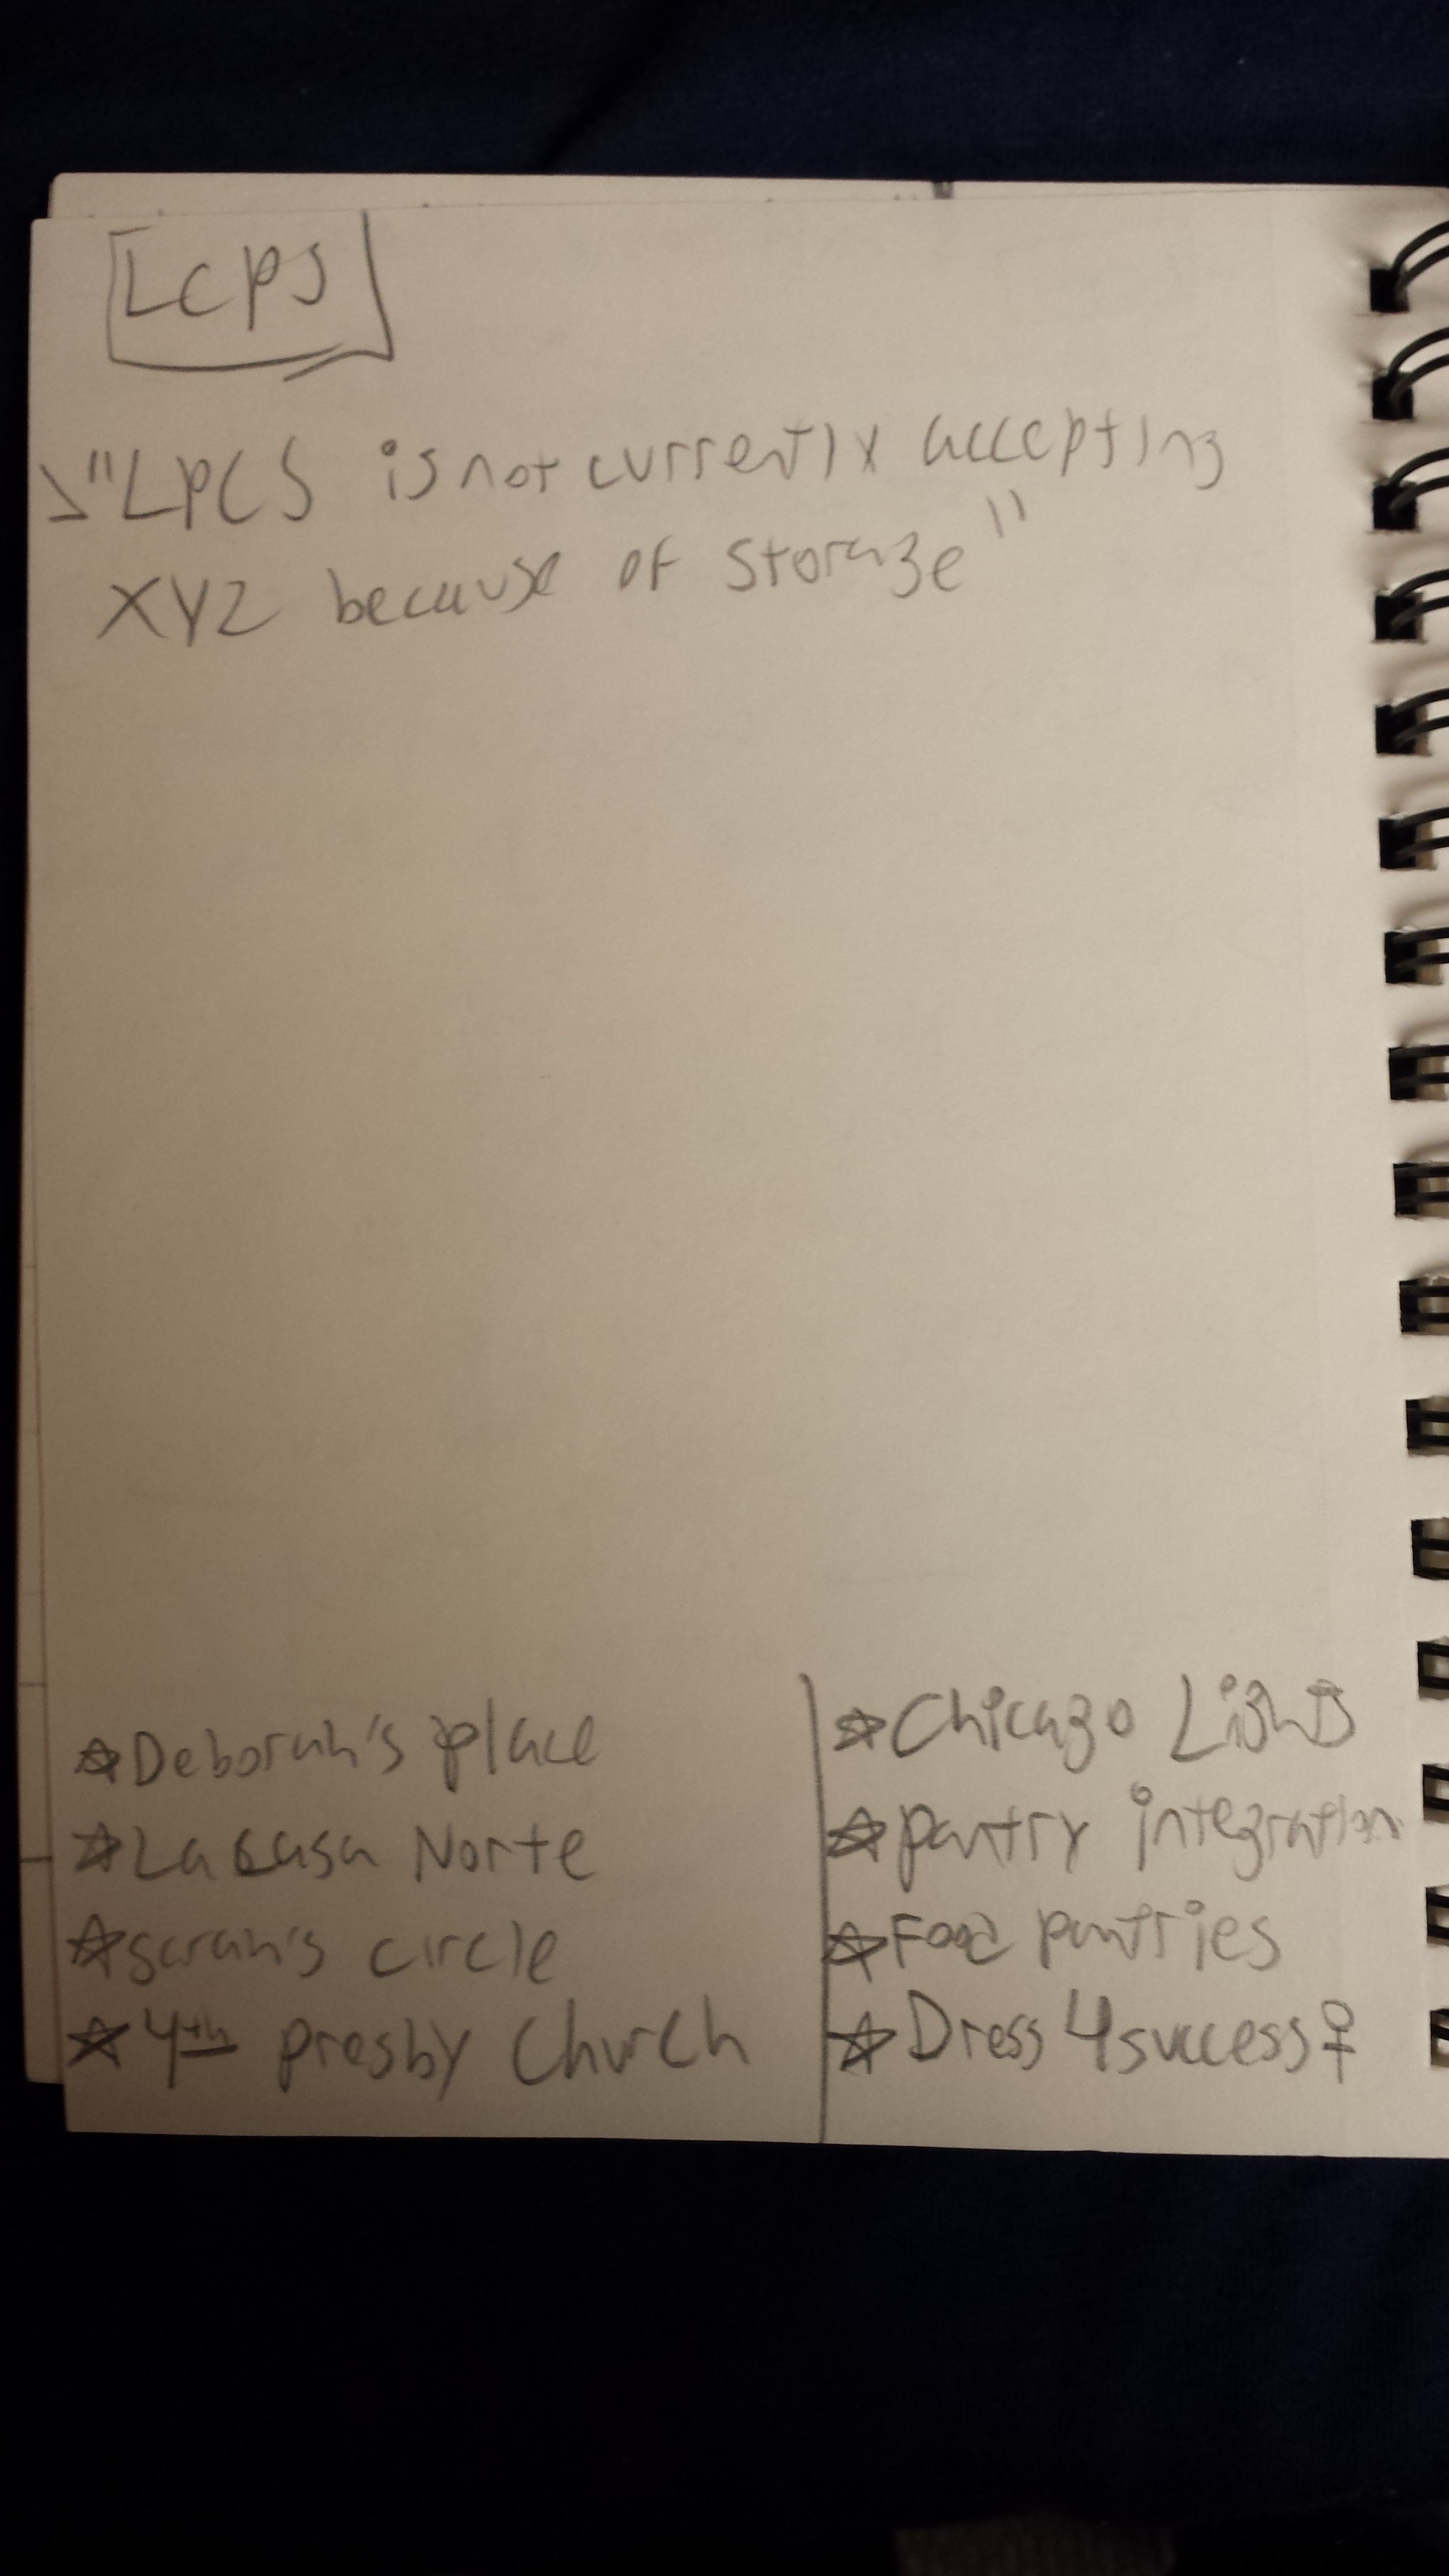 LCPS
"LPCS is not currently accepting
XYZ because of storage"
☆ Deborah's place
☆ La Casa Norte
☆ sarah's circle
☆ 4th presby Church
☆ Chicago Lights
☆ pantry integration
☆ Food pantries
☆ Dress 4 success ♀